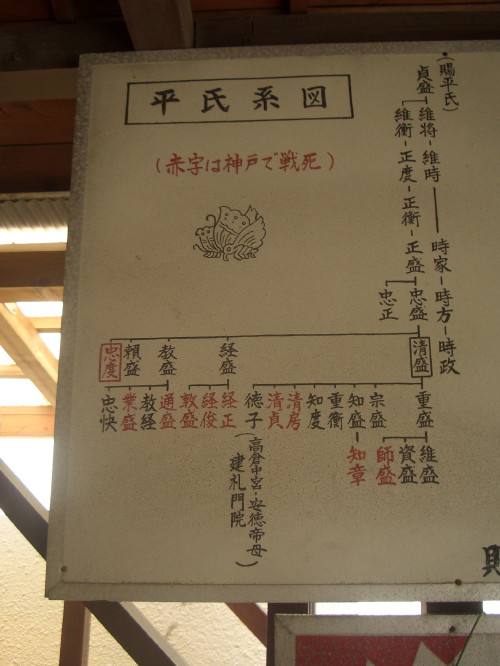 平氏系図
(赤字は神戸で戦死)
(賜平氏)
貞盛
維将-維時
時家-時方-時政
維衡-正度-正衡-正盛
忠盛
忠正
清盛
経盛
教盛
頼盛
忠度
重盛
宗盛
知盛
重衡
知度
清房
清貞
徳子
(高倉中宮・安徳帝母)
建礼門院
経正
経俊
敦盛
通盛
教経
業盛
忠快
維盛
資盛
師盛
知章